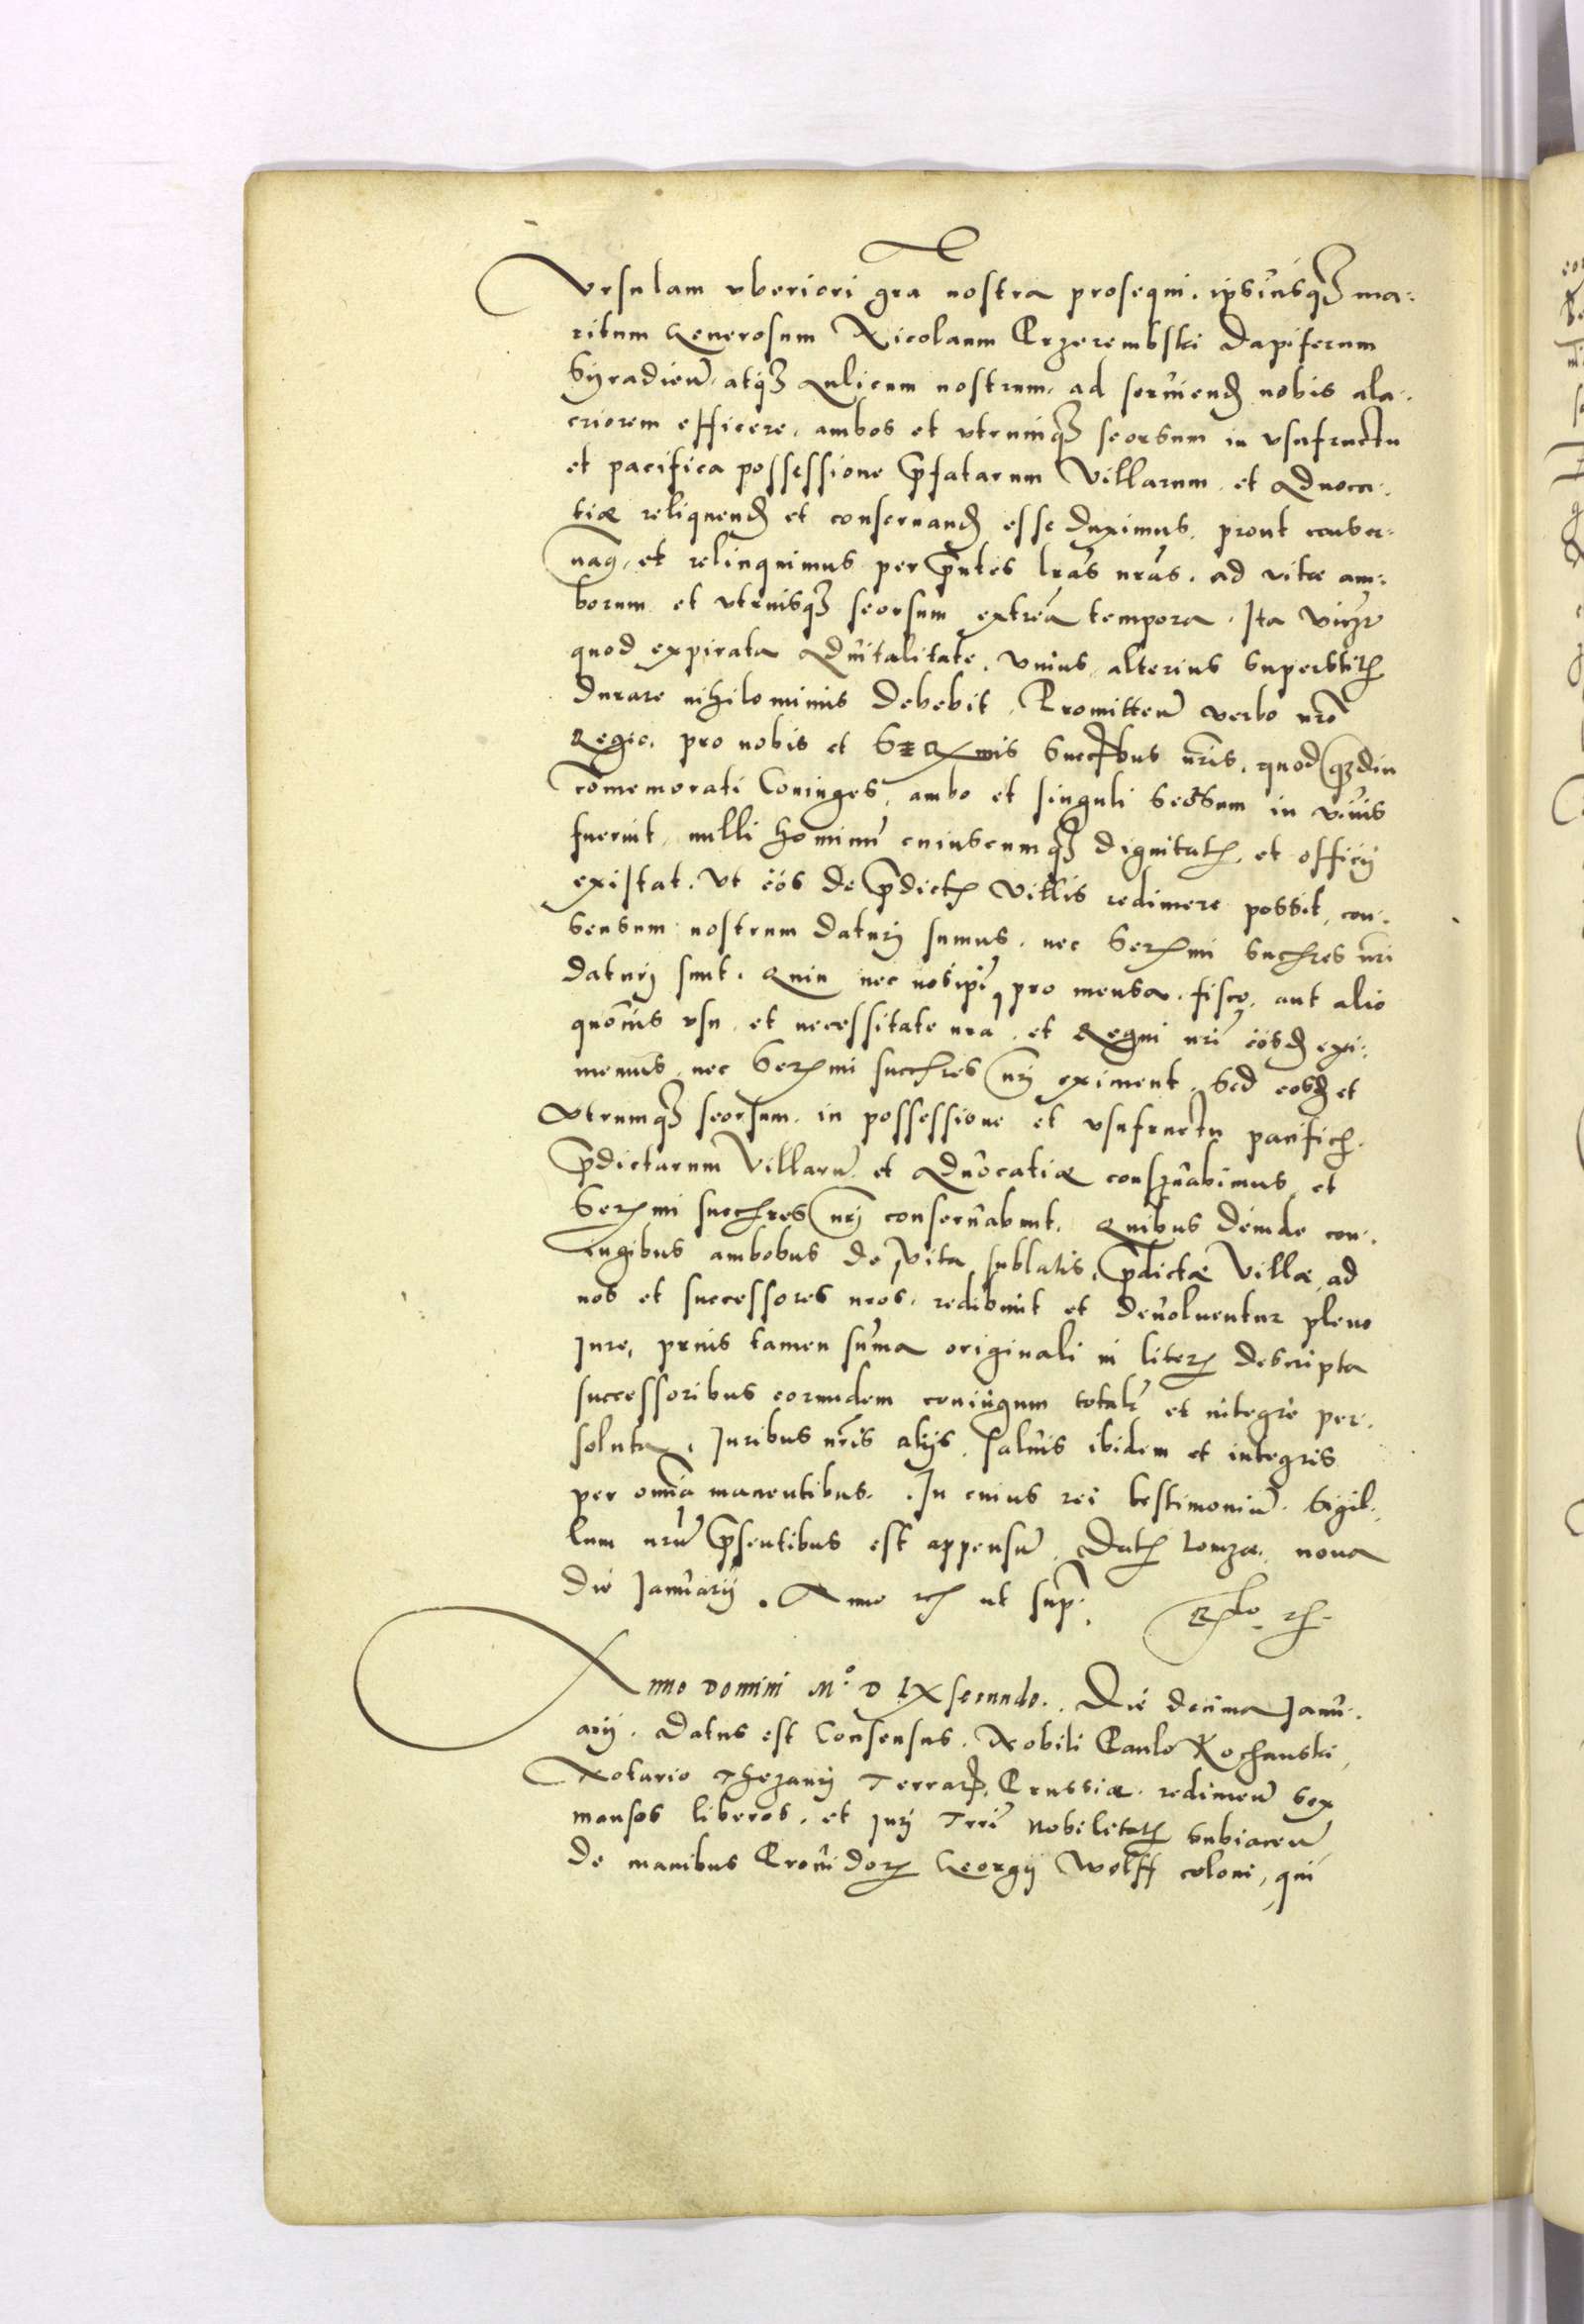 Vrsulam vberiori gra nostra prosequi. ipsiusq3 ma:
ritum Generosum Nicolaum Przerembski Dapiferum
Syradien. atq3 Aulicum nostrum. ad seruiend nobis ala:
criorem efficere. ambos et vtrunq3 seorsum in vsufructu
et pacifica possessione pfatarum Villarum et Aduoca:
tiæ reliquend et conseruand esse duximus. prout conser:
uaq. et relinquimus per pntes lras nras. ad vitæ am:
borum et vtriusq3 seorsum extrea tempora. Ita vicz
quod expirata Aduitalitate. vnius alterius superstit
durare nihilominus debebit. Promitten verbo nro
Regio. pro nobis et Sermis Succbus nris. quod qdiu
comemorati Coniuges, ambo et singuli seorsum in viuis
fuerint, nulli hominu cuiuscumq3 dignitat et officij
existat. Vt eos de pdict Villis redimere possit, con:
sensum nostrum daturj sumus. nec Sermi succres nri
daturj sunt. Quin nec nosipi, pro mensa. fisco. aut alio
quouis vsu et necessitate nra. et Regni nri eosd exi:
memus, nec Sermi succres nrj eximent. Sed eosd et
vtrumq3 seorsum. in possessione et vsufructu pacific.
pdictarum Villaru et Aduocatiæ conseruabimus et
Sermi succres nrj conseruabunt. Quibus deinde con:
iugibus ambobus de vita sublatis, pdictæ Villæ, ad
nos et successores nros. redibunt et deuoluentur pleno
Jure, prius tamen suma originali in liter descripta
successoribus eorundem coniugum totalr et integre per:
soluta. Juribus nris alijs. saluis ibidem et integris
per omnia manentibus. In cuius rei testimoniu. Sigil:
lum nru psentibus est appensu. Dat Lomzæ, nona
die Januarij. Anno rc ut sup.
Anno Domini M° D LX secundo. Die decima Janu:
arij. Datus est Consensus. Nobili Paulo Kochanski,
Notario Thezauri Terrar. Prussiæ. redimen sex
mansos liberos. et jurj Trri Nobilitat subiacen
de manibus Prouidor Georgij Wolff coloni, qui